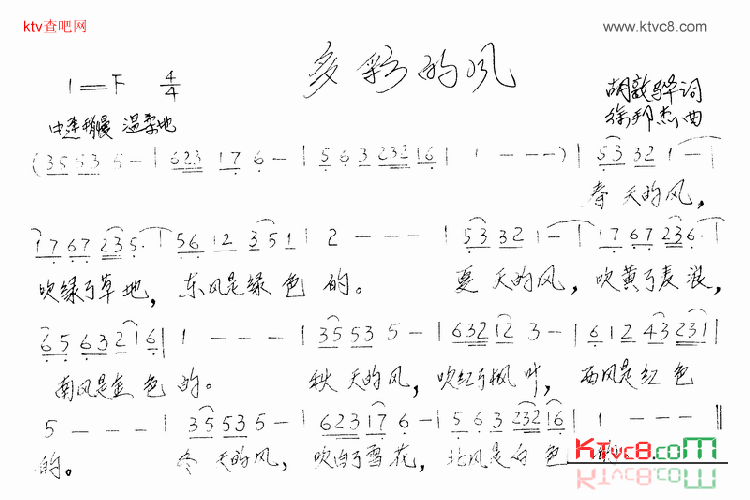 ktv查吧网
www.ktvc8.com
多彩的风
1=F 4/4
胡敦骅词
中速稍慢 温柔地
徐邦杰曲
(35 53 5 - | 623 17 6 - | 5 6 3 232 16 | 1 - - - ) | 53 32 1 - |
春天的风，
17 67 235 · | 56 12 351 | 2 - - - | 53 32 1 - | 17 67 235 · |
吹绿了草地，东风是绿色的。 夏天的风，吹黄了麦浪，
65 63 216 | 1 - - - | 35 53 5 - | 632 12 3 - | 612 43 231 |
南风是金色的。 秋天的风，吹红了枫叶，西风是红色
5 - - - | 35 53 5 - | 623 17 6 - | 5 6 3 232 16 | 1 - - - ‖
的。 冬天的风，吹白了雪花，北风是白色
KTvc8.com